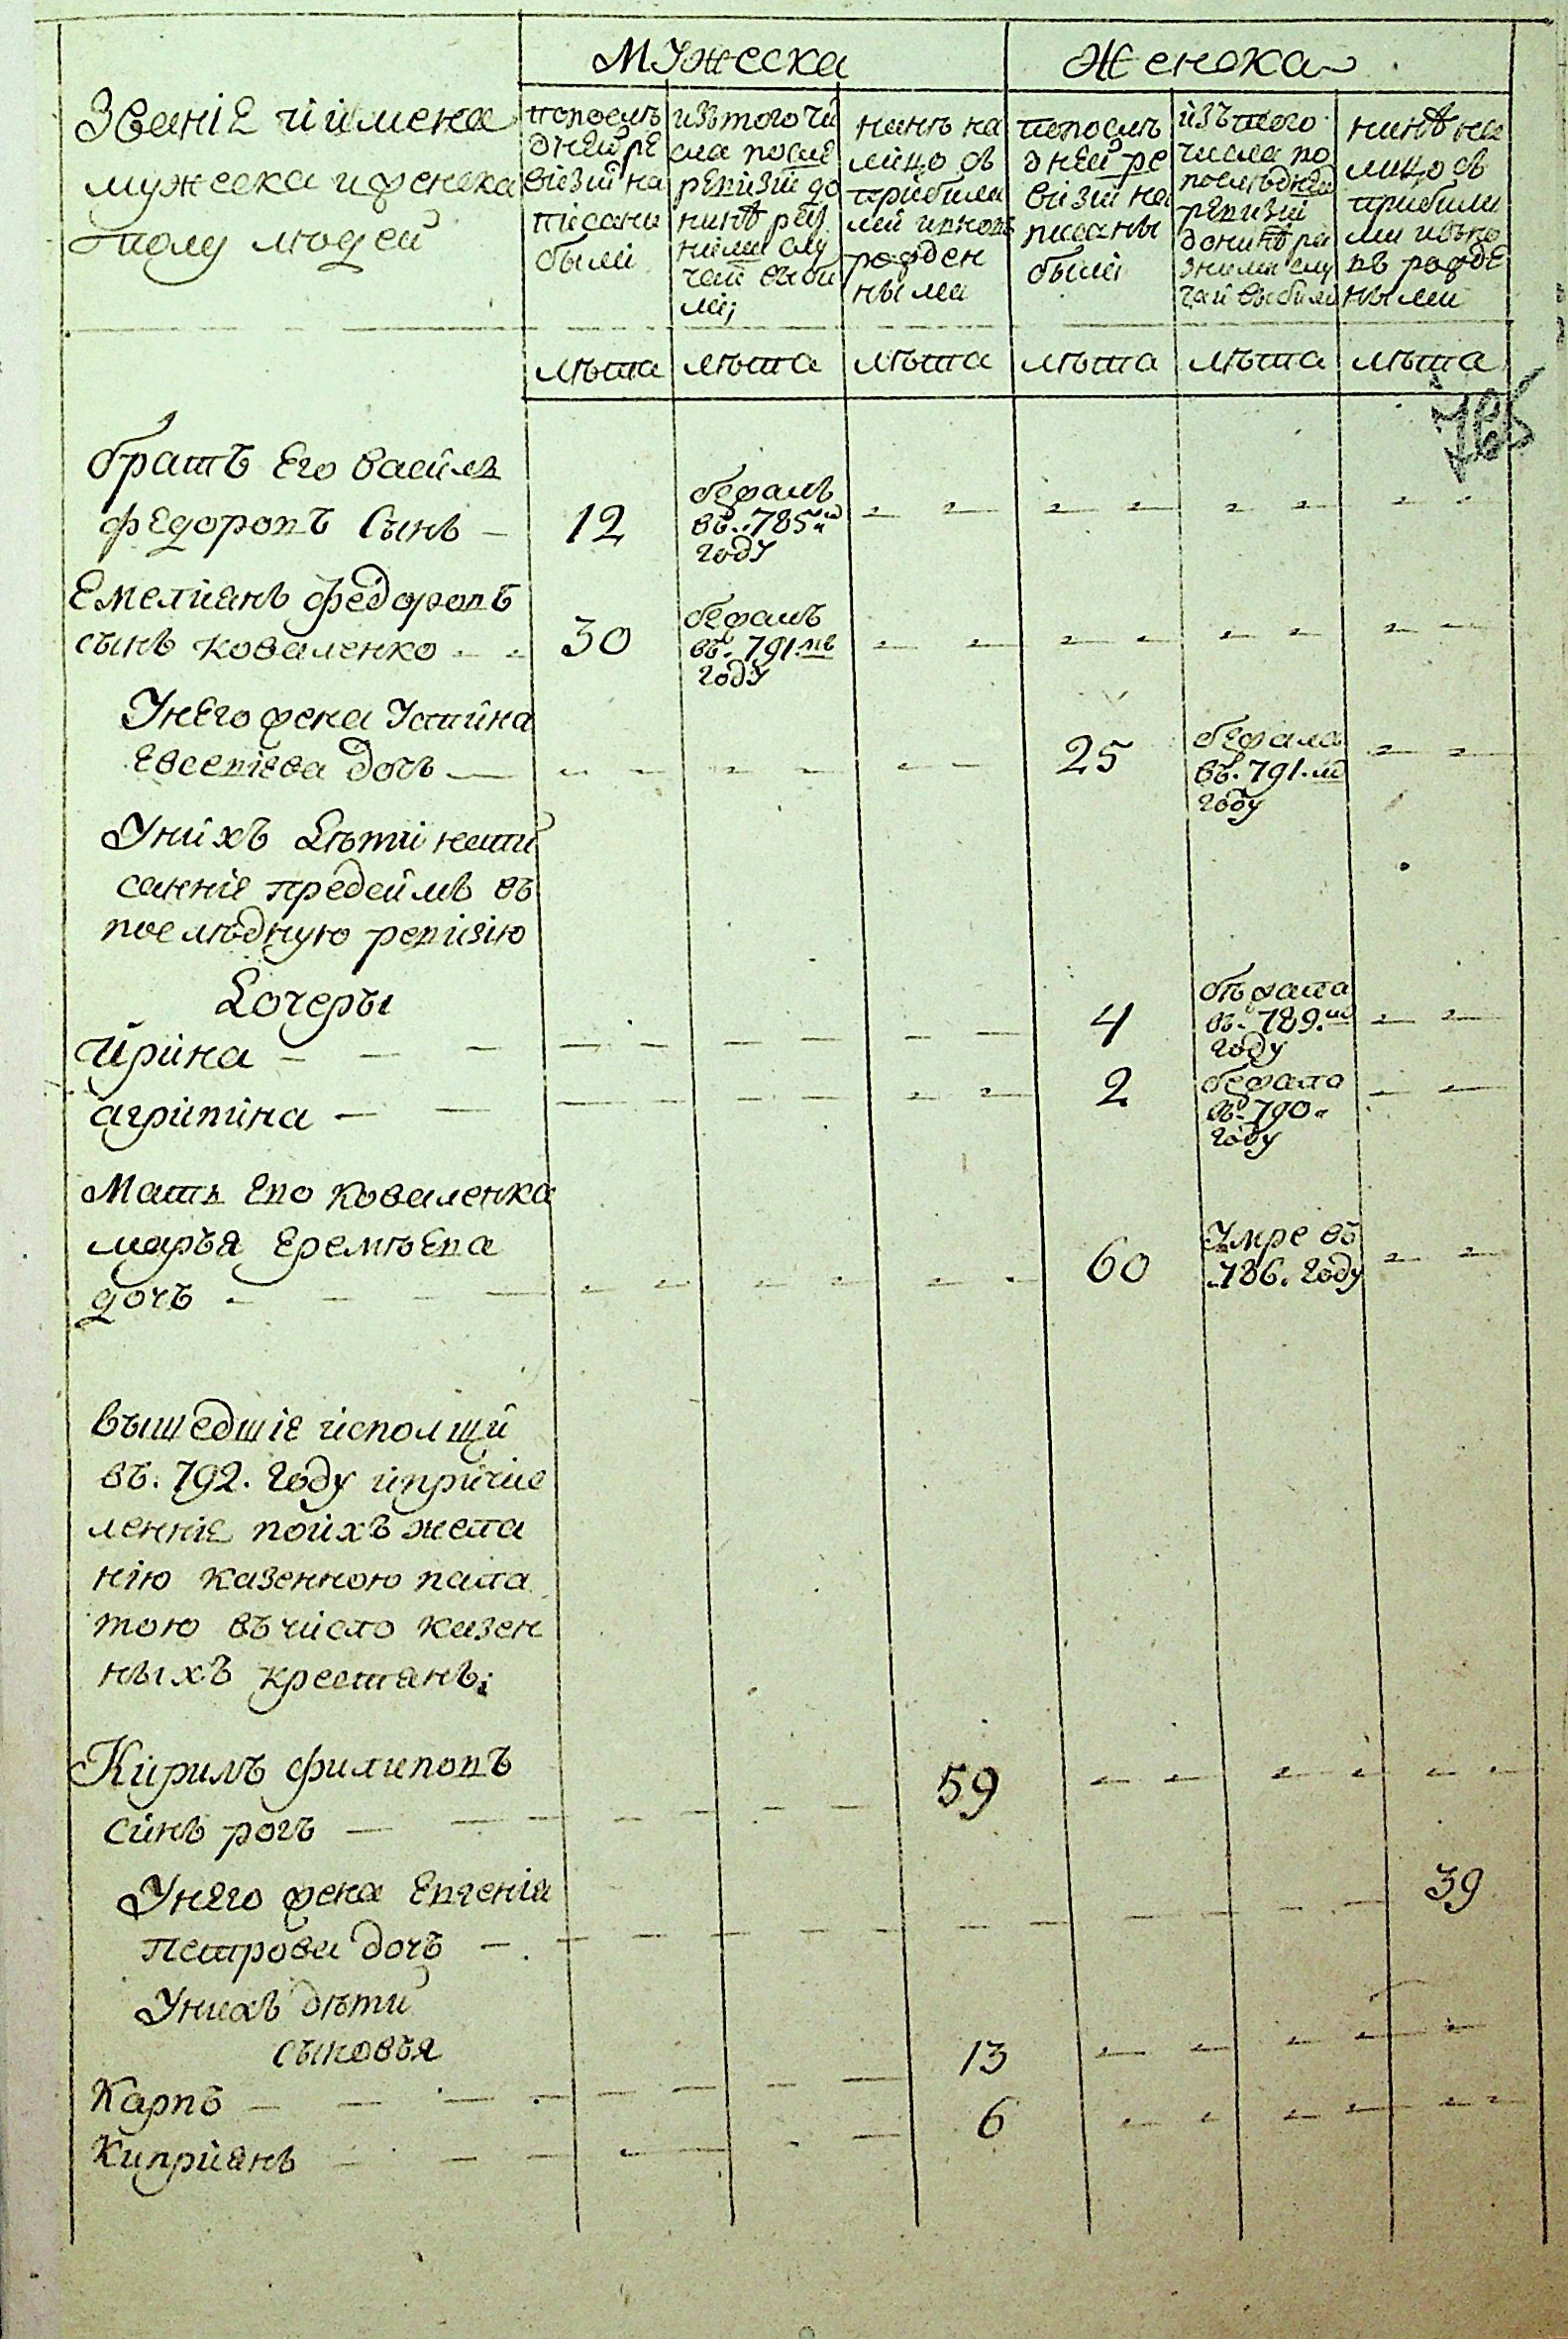 Мужеска
Женска
Званіе и имена
мужеска и женска
полу людей
попослѣ
дней ре
визіи на
писани
были
изъ того чи
сла после
ревизіи до
нинѣ раз
ними слу
чаи выбы
ли;
нинѣ на
лицо съ
прибили
ми и вновь
рожден
ными
попослѣ
дней ре
визіи на
писаны
были
изъ того
числа по
последней
ревизіи
донинѣ ра
зними слу
чаи выбили
нинѣ на
лицо съ
прибили
ми и вьно
вь рожде
ными
лѣта лѣта лѣта лѣта лѣта лѣта
братъ Его василь
федоровъ Сынъ — 12
бежалъ
въ. 785м
году
Емелиянъ федоровъ
сынъ коваленко - - 30
бежалъ
въ. 791.мъ
году
Унего жена Устина
Евсевіева дочь — 25
бежала
въ. 791.м
году
Унихъ Дѣти напи
санніе предсимъ въ
последную ревизію
Дочеры
Ирина — — — 4
бѣжала
въ. 789.м
году
агрипина — — 2
бежала
въ. 790.
году
Мать Ево Коваленка
марья Еремѣева
дочъ - — - — 60
Умре въ
.786. году
вышедшіе исполщи
въ. 792. году ипричис
ленніе поихъ жела
нію казенною пала
тою въ число казен
ныхъ крестянъ;
Кирилъ филиповъ
синъ рогъ — — 59
Унего жена Евгенія
петрова дочъ — . 39
Унихъ дѣти
сыновъя
Карпъ — — — 13
Киприянъ — — 6